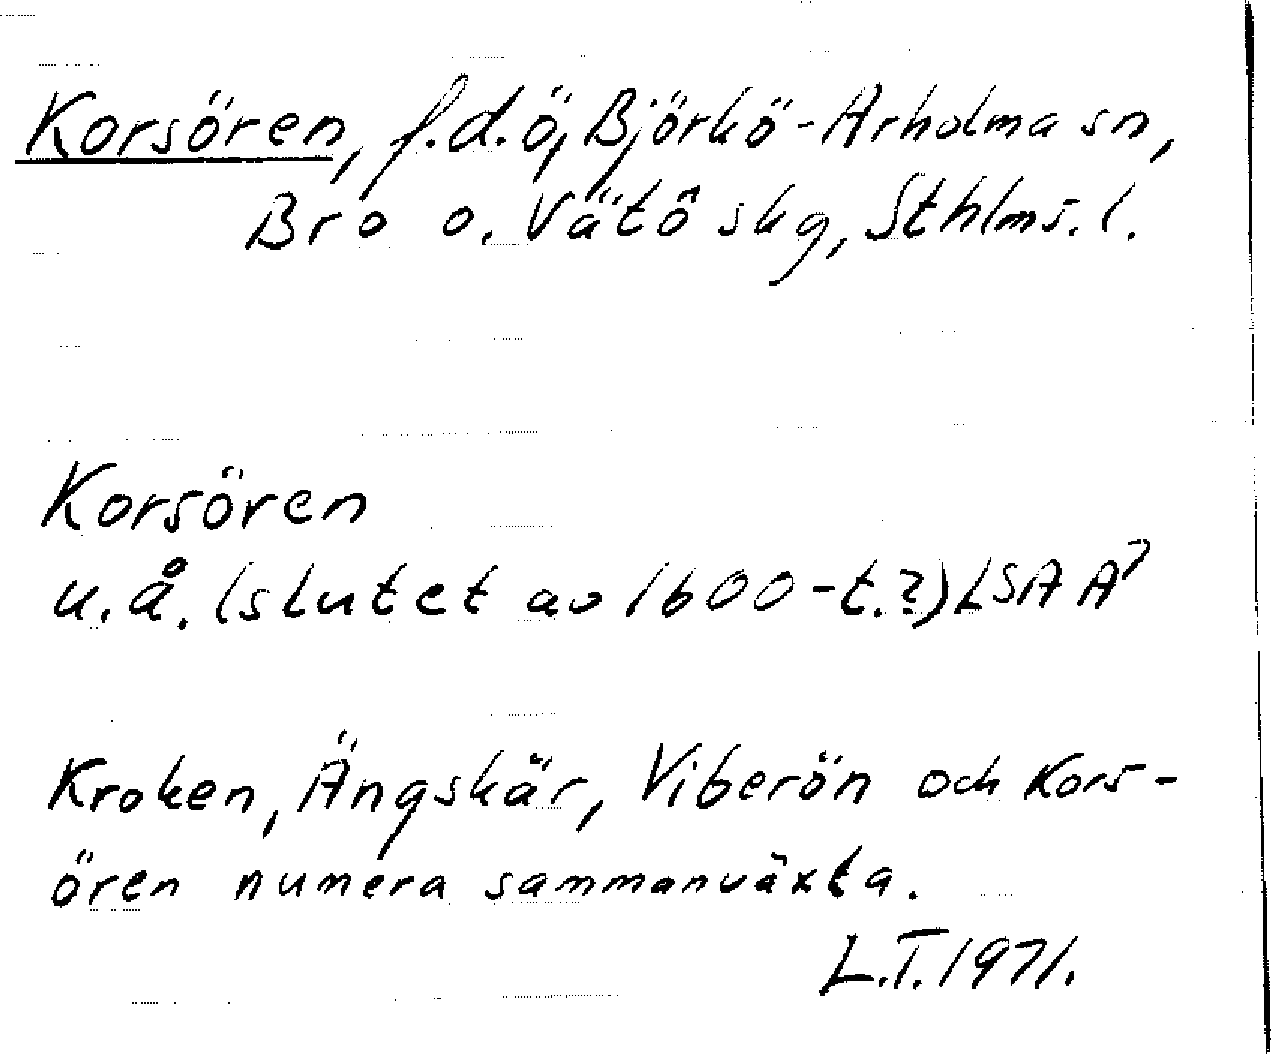 Korsören, f.d. ö, Björkö-Arholma sn,
Bro o. Vätö skg, Sthlms. l.
Korsören
u.å. (slutet av 1600-t.?) LSA A7
Kroken, Ängskär, Viberön och Kors-
ören numera sammanväxta.
L.T. 1971.